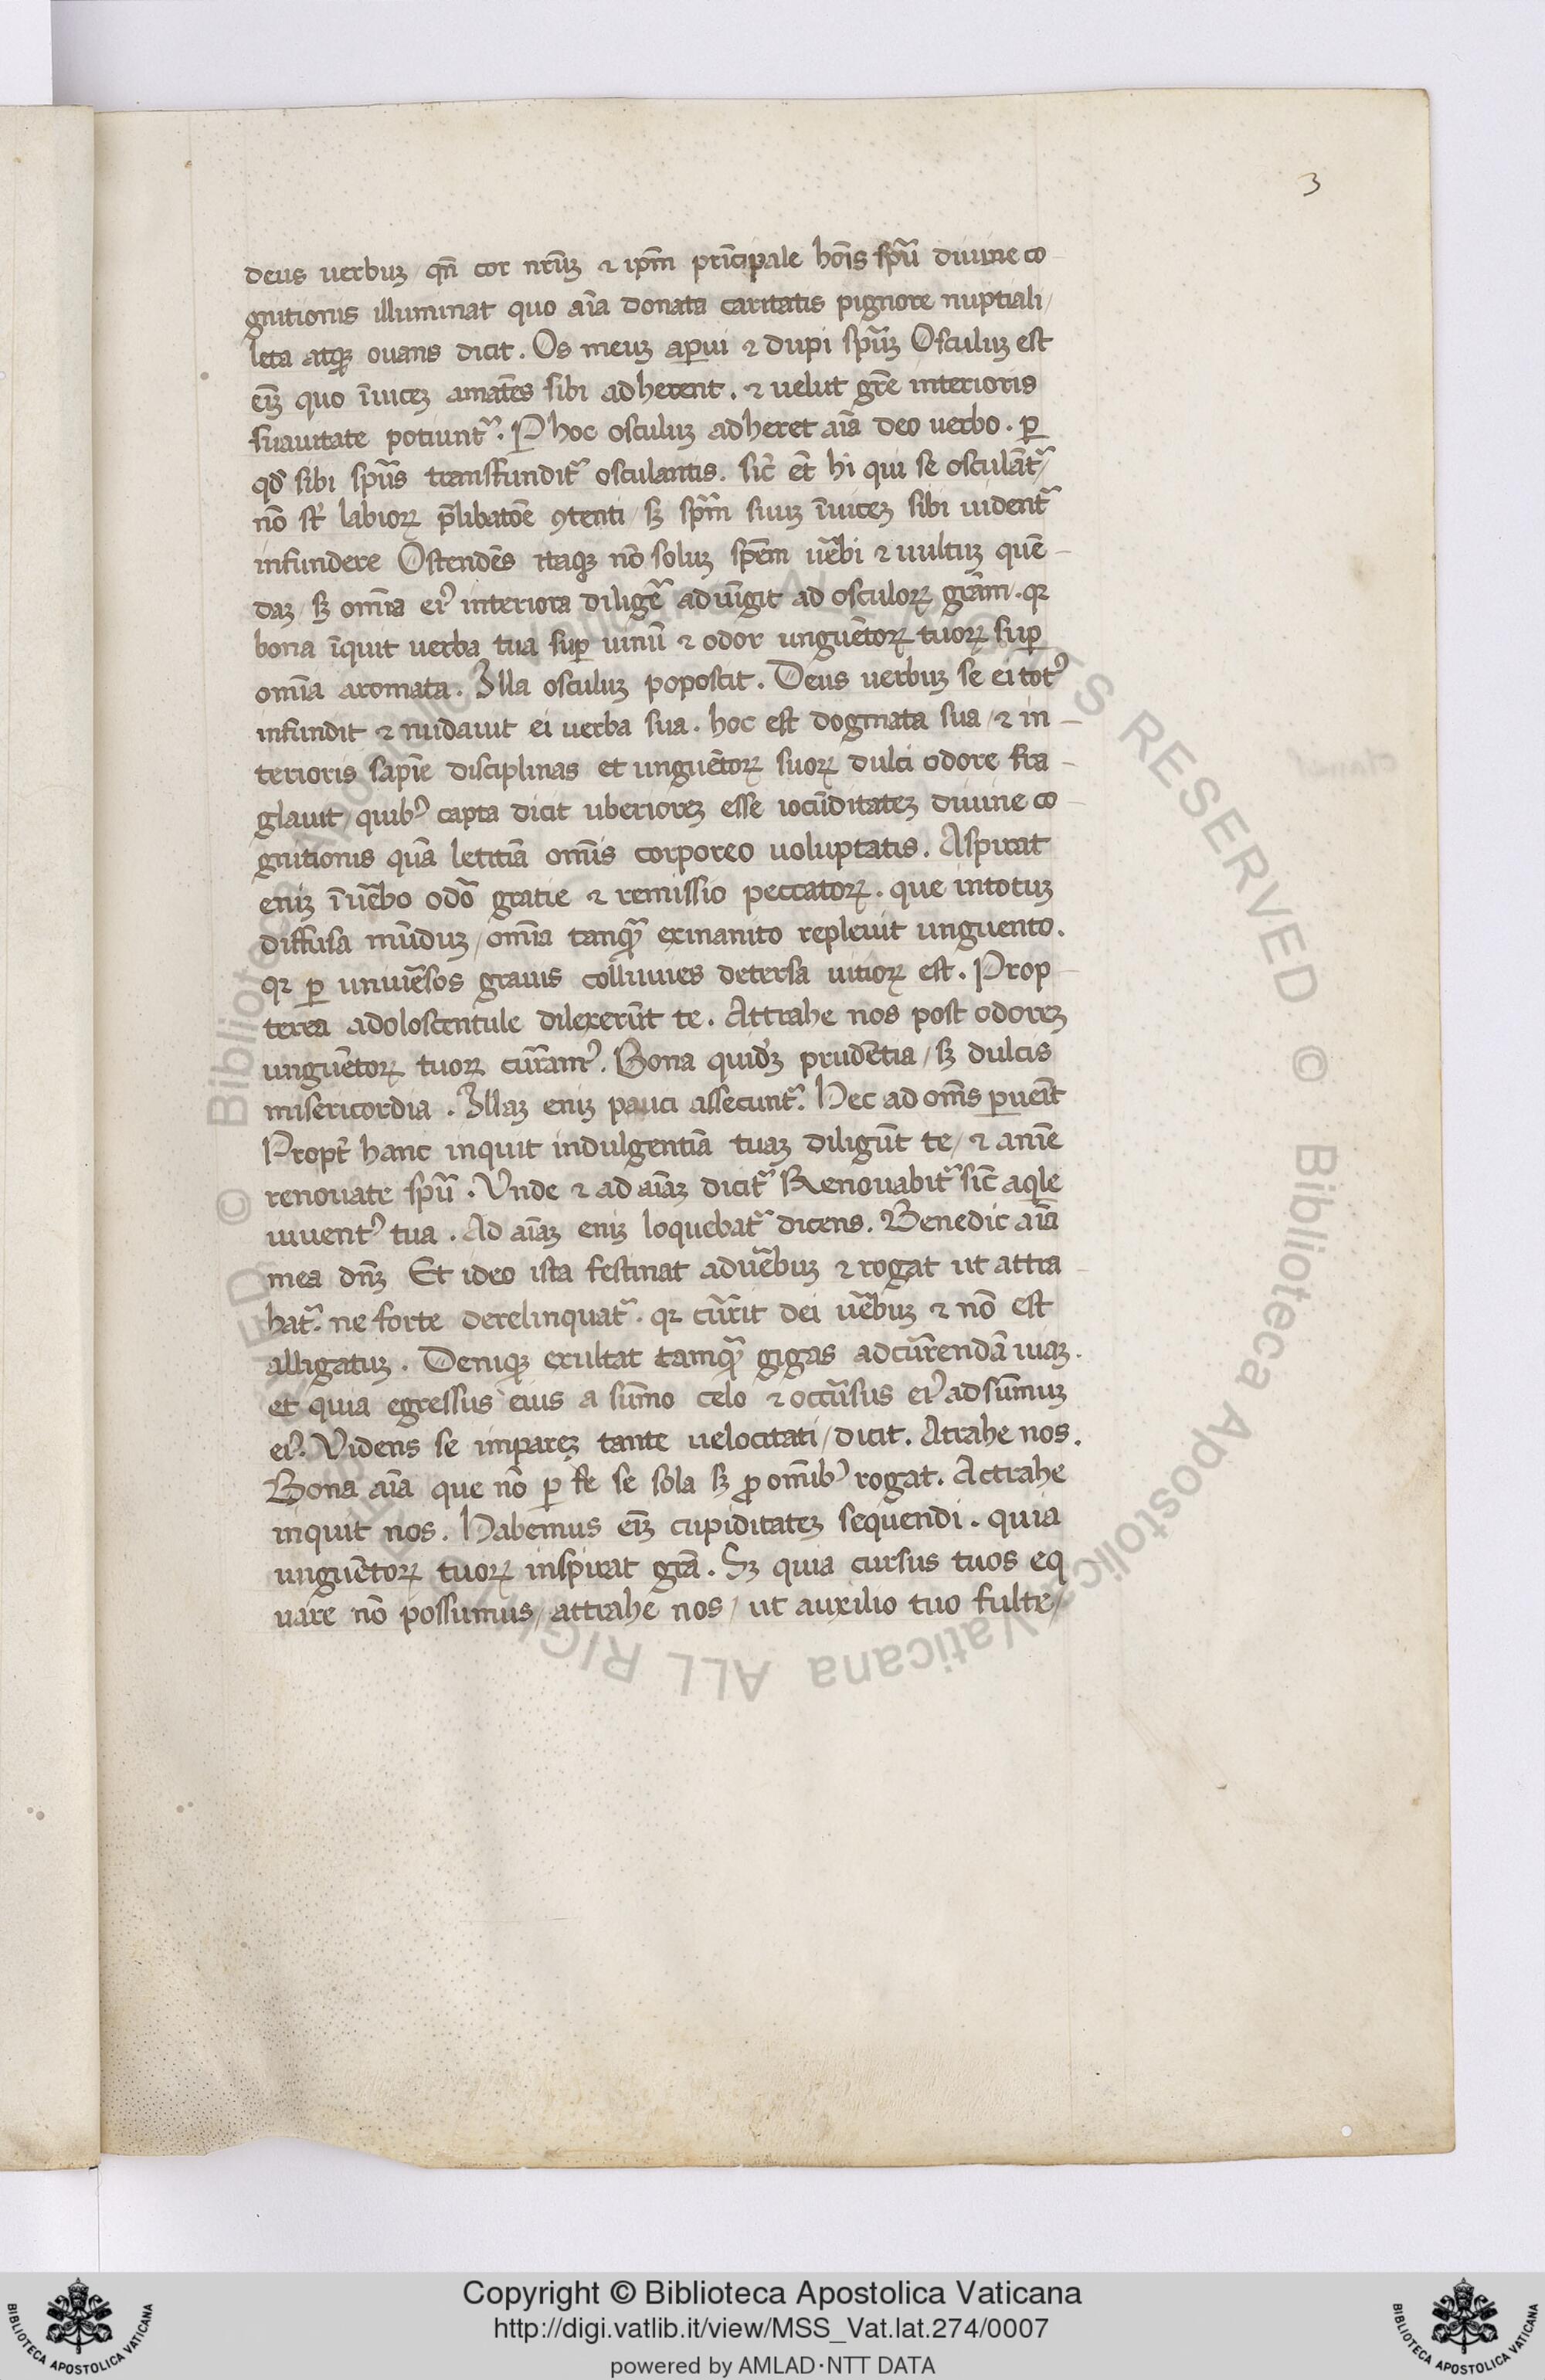 3
deus uerbuꝫ qn̄ cor nr̄uꝫ ⁊ ip̄m prīcipale hoīs spū diuine co
gnitionis illuminat quo aīa donata caritatis pignore nuptiali /
leta atqꝫ ouans dicit . Os meuꝫ aꝑui ⁊ dupi spūꝫ Osculuꝫ est
eīꝫ quo īuiceꝫ amātes sibi adherent . ⁊ uelut gr̄e interioris
suauitate potiunt᷑ . P hoc osculuꝫ adheret aīa deo uerbo . ꝑ
qđ sibi spūs transfundit᷑ osculantis . sic̄ et̄ hi qui se osculāt᷑ /
nō sͭ labioꝝ p̄libatōe ꝯtenti / sꝫ spm̄ suuꝫ īuiceꝫ sibi uident᷑
infundere Ostendēs itaqꝫ nō soluꝫ spēm uēbi ⁊ uultuꝫ quē
daꝫ / sꝫ omīa eiꝰ interiora diligē aduīgit ad osculoꝝ grām . qꝛ
bona īquit uerba tua suꝑ uinū ⁊ odor unguētoꝝ tuoꝝ suꝑ
omīa aromata . Illa osculuꝫ poposcit . Deus uerbuꝫ se ei totꝰ
infundit ⁊ nudauit ei uerba sua . hoc est dogmata sua / ⁊ in
terioris sapīe disciplinas et unguētoꝝ suoꝝ dulci odore fra
glauit / quibꝰ capta dicit uberioreꝫ esse iocūditateꝫ diuine co
gnitionis quā letitiā omīs corporeo uoluptatis . Aspirat
eniꝫ ī uēbo odō gratie ⁊ remissio peccatoꝝ . que intotuꝫ
diffusa mūduꝫ / omīa tanqᷓ exinanito repleuit unguento .
qꝛ ꝑ uniuēsos grauis colluuies detersa uitioꝝ est . Prop
terea adoloscentule dilexerūt te . Attrahe nos post odoreꝫ
unguētoꝝ tuoꝝ curamꝰ . Bona quideꝫ prudētia / sꝫ dulcis
misericordia . Illaꝫ eniꝫ pauci assecunt᷑ . Hec ad omīs ꝑueīt
Propt̄ hanc inquit indulgentiā tuaꝫ diligūt te / ⁊ anīe
renouate spū . Vnde ⁊ ad aīaꝫ dicit᷑ Renouabit᷑ sic̄ aqͥle
iuuentꝰ tua . Ad aīaꝫ eniꝫ loquebat᷑ dicens . Benedic aīa
mea dn̄ꝫ Et ideo ista festinat aduēbuꝫ ⁊ rogat ut attra
hat᷑ . ne forte derelinquat᷑ . qꝛ cūrit dei uēbuꝫ ⁊ nō est
alligatuꝫ . Deniqꝫ exultat tamqᷓ gigas adcūrendā uiaꝫ .
et quia egressus eius a sūmo celo ⁊ occūsus eiꝰ ad sūmuꝫ
eiꝰ . Videns se impareꝫ tante uelocitati / dicit . Atrahe nos .
Bona aīa que nō ꝑ fe se sola sꝫ ꝓ omībꝰ rogat . Actrahe
inquit nos . Habemus eīꝫ cupiditateꝫ sequendi . quia
unguētoꝝ tuoꝝ inspirat grā . Sꝫ quia cursus tuos eq
uare nō possumus / attrahe nos / ut auxilio tuo fulte /
© Biblioteca Apostolica Vaticana ALL RIGHTS RESERVED
© Biblioteca Apostolica Vaticana ALL RIGHTS RESERVED
Copyright © Biblioteca Apostolica Vaticana
http://digi.vatlib.it/view/MSS_Vat.lat.274/0007
powered by AMLAD·NTT DATA
BIBLIOTECA APOSTOLICA VATICANA
BIBLIOTECA APOSTOLICA VATICANA